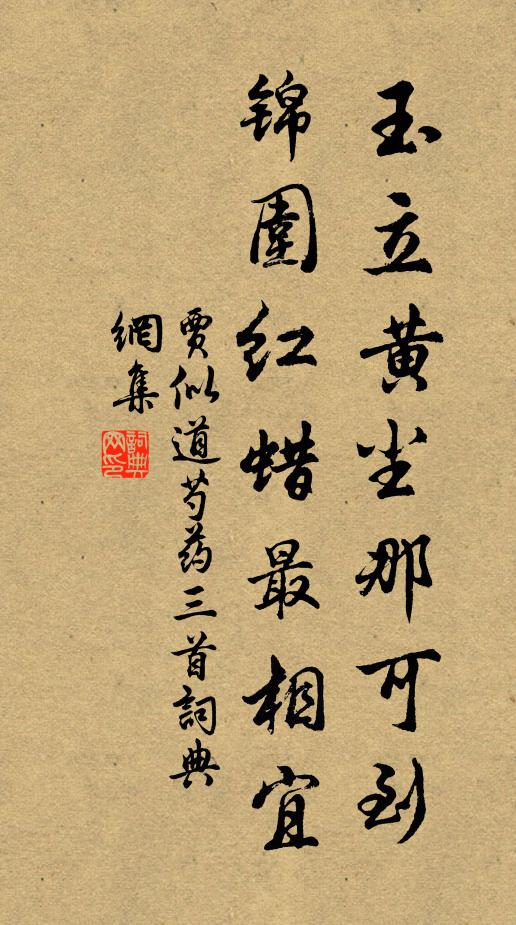 玉立黄尘那可到
锦围红蜡最相宜
贾似道芍药三首詞典
網集
詞典網印